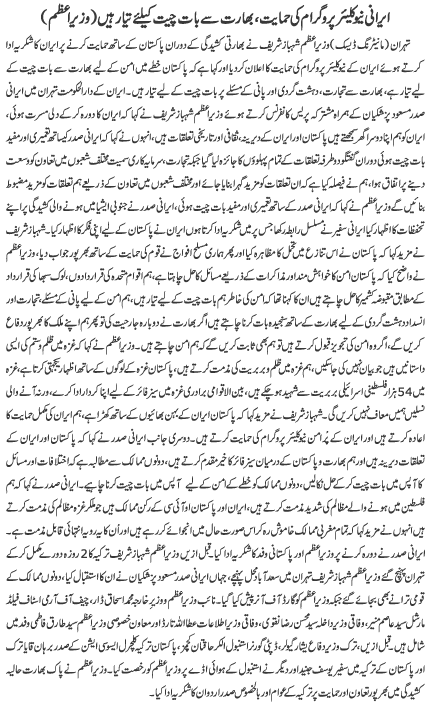 ایرانی نیوکلیئر پروگرام کی حمایت، بھارت سے بات چیت کیلئے تیار ہیں (وزیراعظم)
تہران (مانیٹرنگ ڈیسک) وزیراعظم شہباز شریف نے بھارتی کشیدگی کے دوران پاکستان کے ساتھ حمایت کرنے پر ایران کا شکریہ ادا
کرتے ہوئے ایران کے نیوکلیئر پروگرام کی حمایت کا اعلان کر دیا اور کہا ہے کہ پاکستان خطے میں امن کے لیے بھارت سے بات چیت
کے لیے تیار ہے، بھارت سے تجارت، دہشت گردی اور پانی کے مسئلے پر بات چیت کے لیے تیار ہیں۔ ایران کے دارالحکومت تہران میں ایرانی
صدر مسعود پزشکیان کے ہمراہ مشترکہ پریس کانفرنس کرتے ہوئے وزیراعظم شہباز شریف نے کہا کہ ایران کا دورہ کر کے دلی مسرت ہوئی،
ایران کو ہم اپنا دوسرا گھر سمجھتے ہیں پاکستان اور ایران کے دیرینہ، ثقافتی اور تاریخی تعلقات ہیں، انہوں نے کہا کہ ایرانی صدر کیساتھ تعمیری اور مفید
بات چیت ہوئی دوران گفتگو دوطرفہ تعلقات کے تمام پہلوؤں کا جائزہ لیا گیا جبکہ تجارت، سرمایہ کاری سمیت مختلف شعبوں میں تعاون کو وسعت
دینے پر اتفاق ہوا، ہم نے فیصلہ کیا ہے کہ ہم تعلقات کو مزید گہرا بنایا جائے اور مختلف شعبوں میں تعاون کے ذریعے ہم تعلقات کو مزید مضبوط
بنائیں گے وزیراعظم نے کہا کہ ایرانی صدر سے تعمیری اور مفید بات چیت ہوئی، ایرانی صدر نے جنوبی ایشیا میں ہونے والی کشیدگی پر اپنے
تحفظات کا اظہار کیا ایرانی سفیر نے مسلسل رابطہ رکھا جس پر میں شکریہ ادا کرتا ہوں ایران نے پاکستان کے لیے اپنی فکر کا اظہار کیا۔ شہباز شریف
نے مزید کہا کہ پاکستان نے اس تنازع میں تحمل کا مظاہرہ کیا اور پھر ہماری مسلح افواج نے قوم کی حمایت کے ساتھ بھرپور جواب دیا، وزیراعظم
نے واضح کیا کہ پاکستان امن کا خواہش مند اور مذاکرات کے ذریعے مسائل کا حل چاہتا ہے، ہم اقوام متحدہ کی قراردادوں، لوک سبھا کی قرارداد
کے مطابق مقبوضہ کشمیر کا حل چاہتے ہیں ان کا کہنا تھا کہ امن کی خاطر ہم بات چیت کے لیے تیار ہیں، ہم امن کے لیے پانی کے مسئلے، تجارت اور
انسداد دہشت گردی کے لیے بھارت کے ساتھ سنجیدہ بات کرنا چاہتے ہیں اگر بھارت نے دوبارہ جارحیت کی تو پھر ہم اپنے ملک کا بھرپور دفاع
کریں گے، اگر وہ امن کی تجویز قبول کرتے ہیں تو ہم بھی ثابت کریں گے کہ ہم امن چاہتے ہیں۔ وزیراعظم نے کہا کہ غزہ میں ظلم و ستم کی ایسی
داستانیں ہیں جو بیان نہیں کی جا سکتیں، ہم غزہ میں ظلم و بربریت کے خلاف ہیں اور فلسطینیوں کے ساتھ اظہار یکجہتی کرتے ہیں، غزہ
میں 54 ہزار فلسطینی اسرائیلی بربریت سے شہید ہو چکے ہیں، بین الاقوامی برادری غزہ میں سیز فائر کے لیے اپنا کردار ادا کرے، ورنہ آنے والی
نسلیں ہمیں معاف نہیں کریں گی۔ شہباز شریف نے مزید کہا کہ پاکستان ایران کے بہن بھائیوں کے ساتھ کھڑا ہے، ہم ایران کی مکمل حمایت کا
اعادہ کرتے ہیں اور ایران کے پُرامن نیوکلیئر پروگرام کی حمایت کرتے ہیں۔ دوسری جانب ایرانی صدر نے کہا کہ پاکستان اور ایران کے
تعلقات دیرینہ ہیں اور ہم بھارت و پاکستان کے درمیان سیز فائر کا خیر مقدم کرتے ہیں، دونوں ممالک سے مطالبہ ہے کہ اختلافات اور مسائل
کا آپس میں بات چیت کر کے حل نکالیں، دونوں ممالک کو خطے کے امن کے لیے آپس میں بات چیت کرنا چاہیے۔ ایرانی صدر نے کہا کہ ہم
غزہ میں ہونے والے مظالم کی شدید مذمت کرتے ہیں، پاکستان اور ایران او آئی سی کے رکن ممالک ہیں جو ملکر غزہ مظالم کی مذمت کرتے
ہیں انہوں نے مزید کہا کہ تمام مغربی ممالک خاموش رہ کر اس صورت حال میں انجوائے کر رہے ہیں اور ان کا یہ رویہ انتہائی قابل مذمت ہے۔
ایرانی صدر نے دورہ کرنے پر وزیراعظم اور پاکستانی وفد کا شکریہ ادا کیا۔ قبل ازیں وزیراعظم شہباز شریف ترکیہ کا 2 روزہ دورے مکمل کر کے
تہران پہنچ گئے وزیراعظم شہباز شریف تہران میں سعد آباد محل پہنچے، جہاں ایرانی صدر مسعود پزشکیان نے ان کا استقبال کیا، دونوں ممالک کے
قومی ترانے بھی بجائے گئے جبکہ وزیراعظم کو گارڈ آف آنر پیش کیا گیا۔ نائب وزیراعظم و وزیر خارجہ محمد اسحاق ڈار، چیف آف آرمی اسٹاف فیلڈ
مارشل سید عاصم منیر، وفاقی وزیر داخلہ سید محسن رضا نقوی، وفاقی وزیر اطلاعات عطا اللہ تارڑ اور معاون خصوصی وزیراعظم سید طارق فاطمی وفد میں
شامل ہیں۔ قبل ازیں، ترک وزیر دفاع یشار گیولر، ڈپٹی گورنر استنبول الکر خاقتان کچمز، پاکستان ترکیہ کلچرل ایسوسی ایشن کے صدر برہان قایا ترک
اور پاکستان کے ترکیہ میں سفیر یوسف جنید اور دیگر نے استنبول کے ہوائی اڈے پر وزیراعظم کو رخصت کیا۔ وزیراعظم نے پاک بھارت حالیہ
کشیدگی میں بھرپور تعاون اور حمایت پر ترکیہ کے عوام اور بالخصوص صدر اردوان کا شکریہ ادا کیا۔